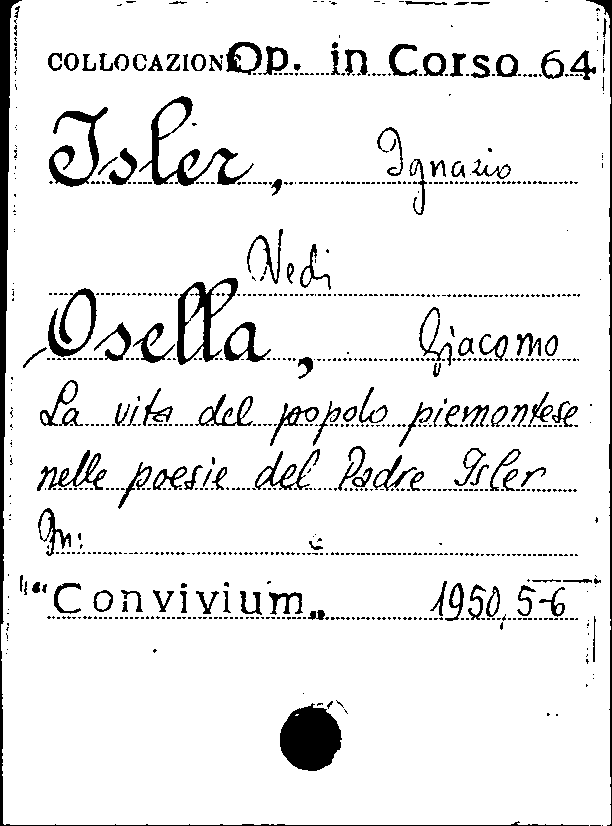 COLLOCAZIONE Op. in Corso 64
Isler, Ignazio
Vedi
Osella, Giacomo
La vita del popolo piemontese
nelle poesie del Padre Isler
In:
"Convivium„ 1950, 5-6